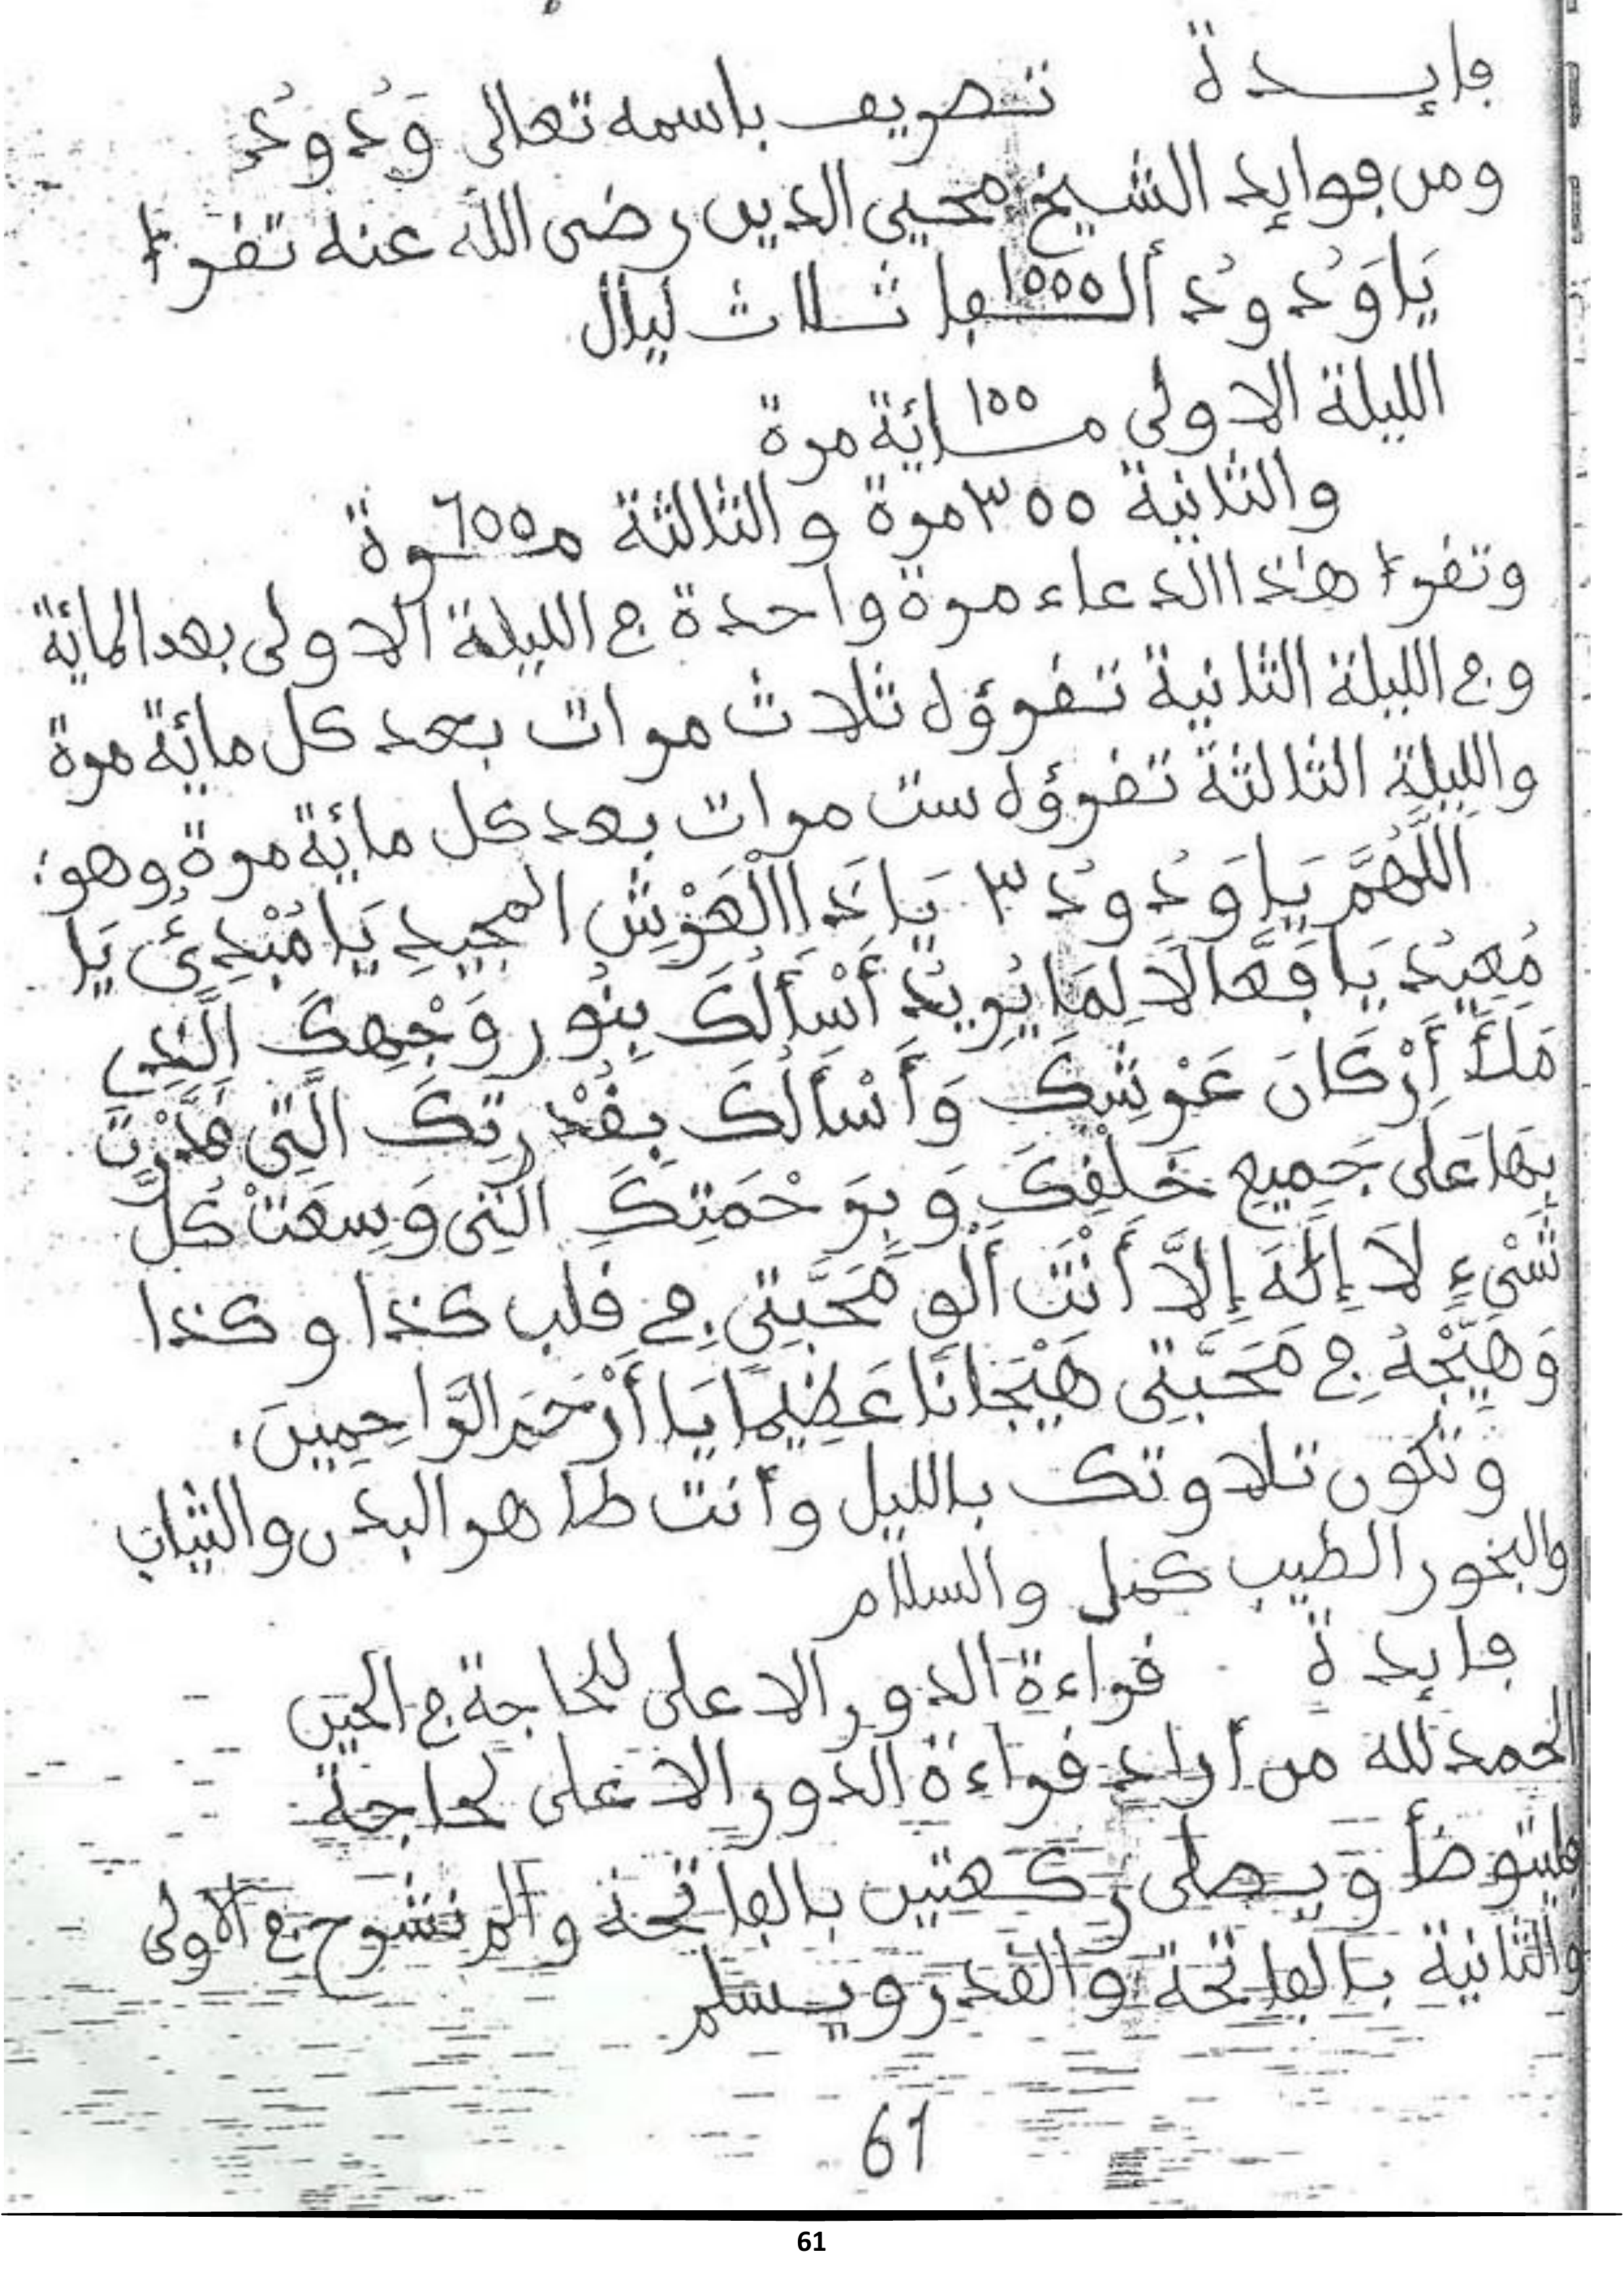 فايدة تصريف باسمه تعالى وَدُودُ
ومن فوايد الشيخ محيي الدين رضى الله عنه تقرأ
يَا وَدُودُ ألفا ١٥٥٥ ثلاث ليال
الليلة الاولى مائة ١٥٥ مرة
والثانية ٣٥٥ مرة والثالثة ٦٥٥ مرة
وتقرأ هذا الدعاء مرة واحدة في الليلة الاولى بعد المائة
وفي الليلة الثانية تقرؤه ثلاث مرات بعد كل مائة مرة
والليلة الثالثة تقرؤه ست مرات بعد كل مائة مرة وهو:
اللَّهُمَّ يَا وَدُودُ ٣ يَا ذَا الْعَرْشِ المجيدِ يَا مُبْدِئُ يَا
مُعِيدُ يَا فَعَّالاً لِمَا يُرِيدُ أَسْأَلُكَ بِنُورِ وَجْهِكَ الَّذِي
مَلَأَ أَرْكَانَ عَرْشِكَ وَأَسْأَلُكَ بِقُدْرَتِكَ الَّتِي قَدَّرْتَ
بِهَا عَلَى جَمِيعِ خَلْقِكَ وَبِرَحْمَتِكَ الَّتِي وَسِعَتْ كُلَّ
شَيْءٍ لاَ إِلَهَ إِلاَّ أَنْتَ أَلْقِ مَحَبَّتِي فِي قلب كذا وكذا
وَهَيِّجْهُ فِي مَحَبَّتِي هَيْجَانًا عَظِيمًا يَا أَرْحَمَ الرَّاحِمِينَ.
وتكون تلاوتك بالليل وأنت طاهر البدن والثياب
والبخور الطيب كمل والسلام
فايدة قراءة الدور الاعلى للحاجة في الحين
الحمد لله من أراد قراءة الدور الاعلى لحاجة
فليتوضأ ويصلى ركعتين بالفاتحة وألم نشرح في الاولى
والثانية بالفاتحة والقدر ويسلم
61
61